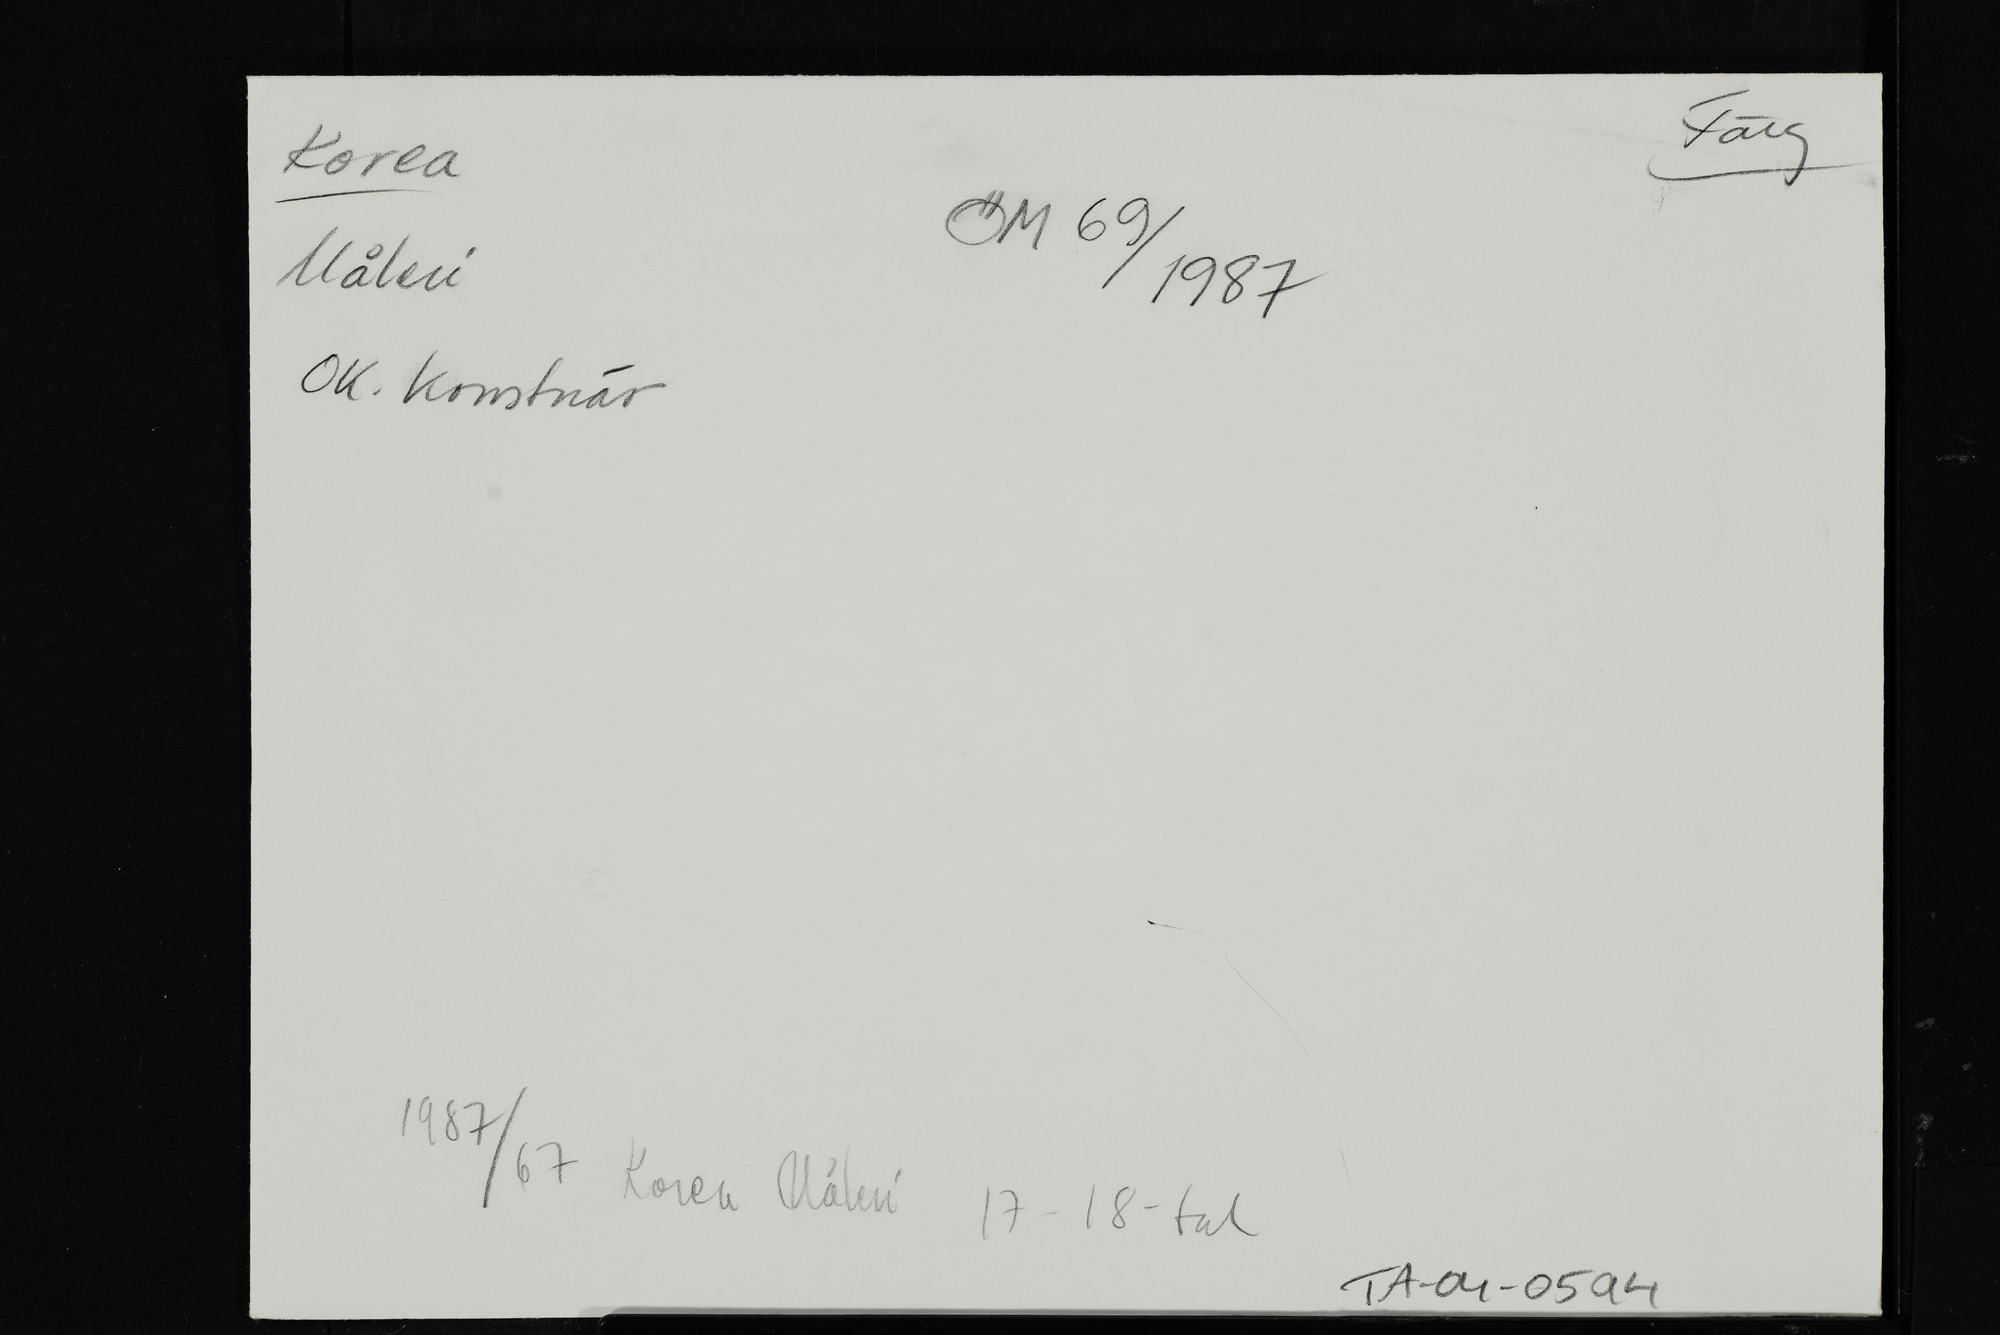 Korea
Färg
Måleri
ÖM 69/1987
OK. Konstnär
1987/67 Korea Måleri 17-18-tal
TA-04-0594